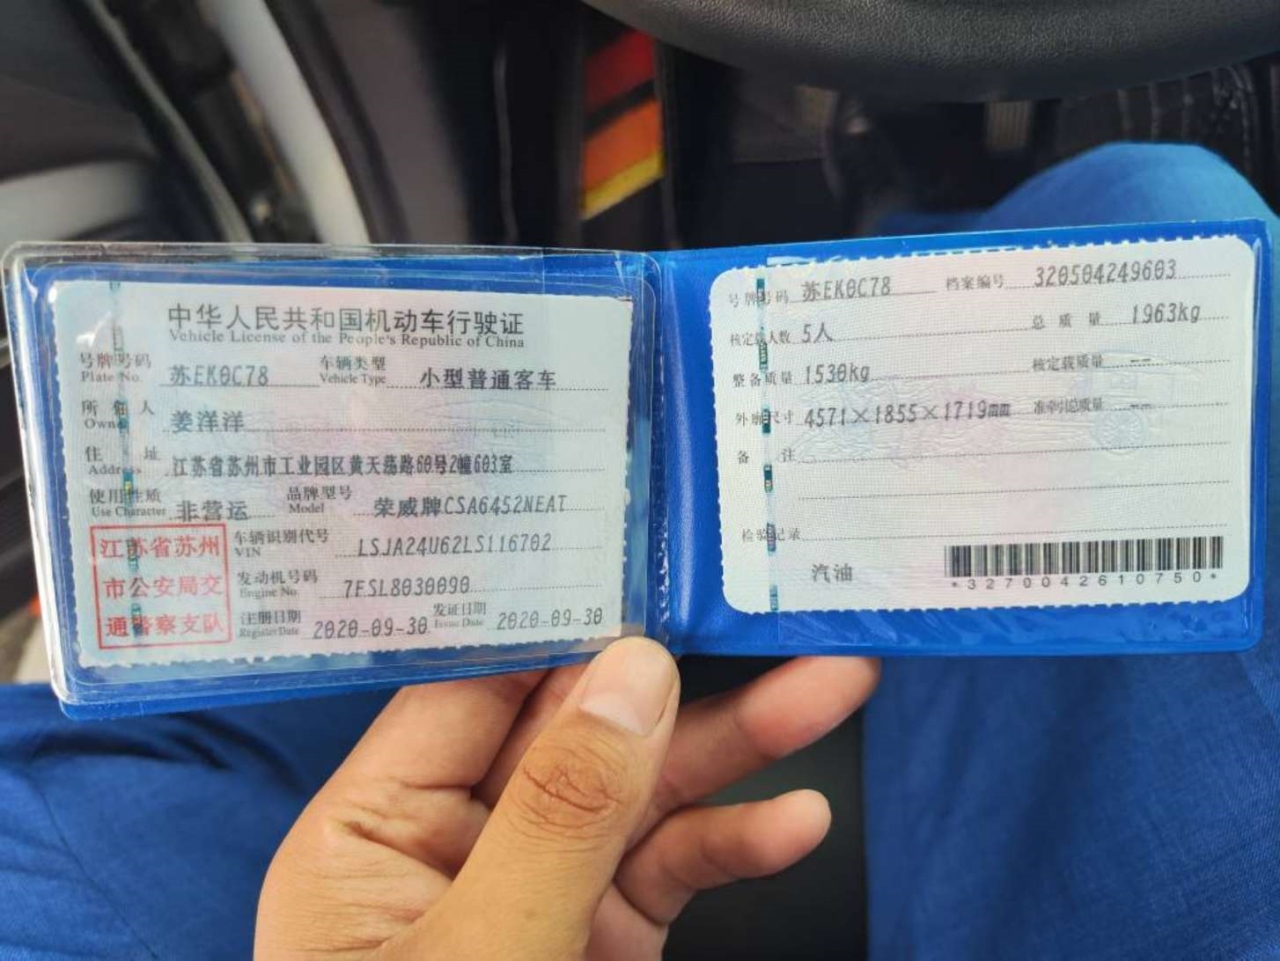 中华人民共和国机动车行驶证
Vehicle License of the People's Republic of China
号牌号码 苏EK0C78 车辆类型 小型普通客车
Plate No. Vehicle Type
所有人 姜洋洋
Owner
住址 江苏省苏州市工业园区黄天荡路60号2幢603室
Address
使用性质 非营运 品牌型号 荣威牌CSA6452NEAT
Use Character Model
江苏省苏州
市公安局交
通警察支队
车辆识别代号 LSJA24U62LS116702
VIN
发动机号码 7FSL8030090
Engine No.
注册日期 2020-09-30 发证日期 2020-09-30
Register Date Issue Date
号牌号码 苏EK0C78 档案编号 320504249603
核定载人数 5人 总质量 1963kg
整备质量 1530kg 核定载质量 --
外廓尺寸 4571×1855×1719mm 准牵引总质量 --
备注
检验记录
汽油
*3270042610750*